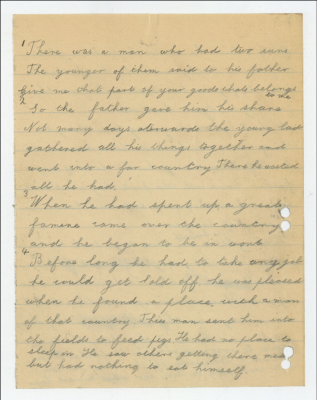 1 There was a man who had two sons
The younger of them said to his father
Give me that part of your goods thats belongs
to me
2 So the father gave him his share
Not many days afterwards the young lad
gathered all his things together and
went into a far country There he wasted
all he had.
3 When he had spent up a great
famine came over the country
and he began to be in want
4 Before long he had to take any job
he could get hold off he was pleased
when he found a place with a man
of that country This man sent him into
the fields to feed pigs He had no place to
sleep in He saw others getting there meals
but had nothing to eat himself.